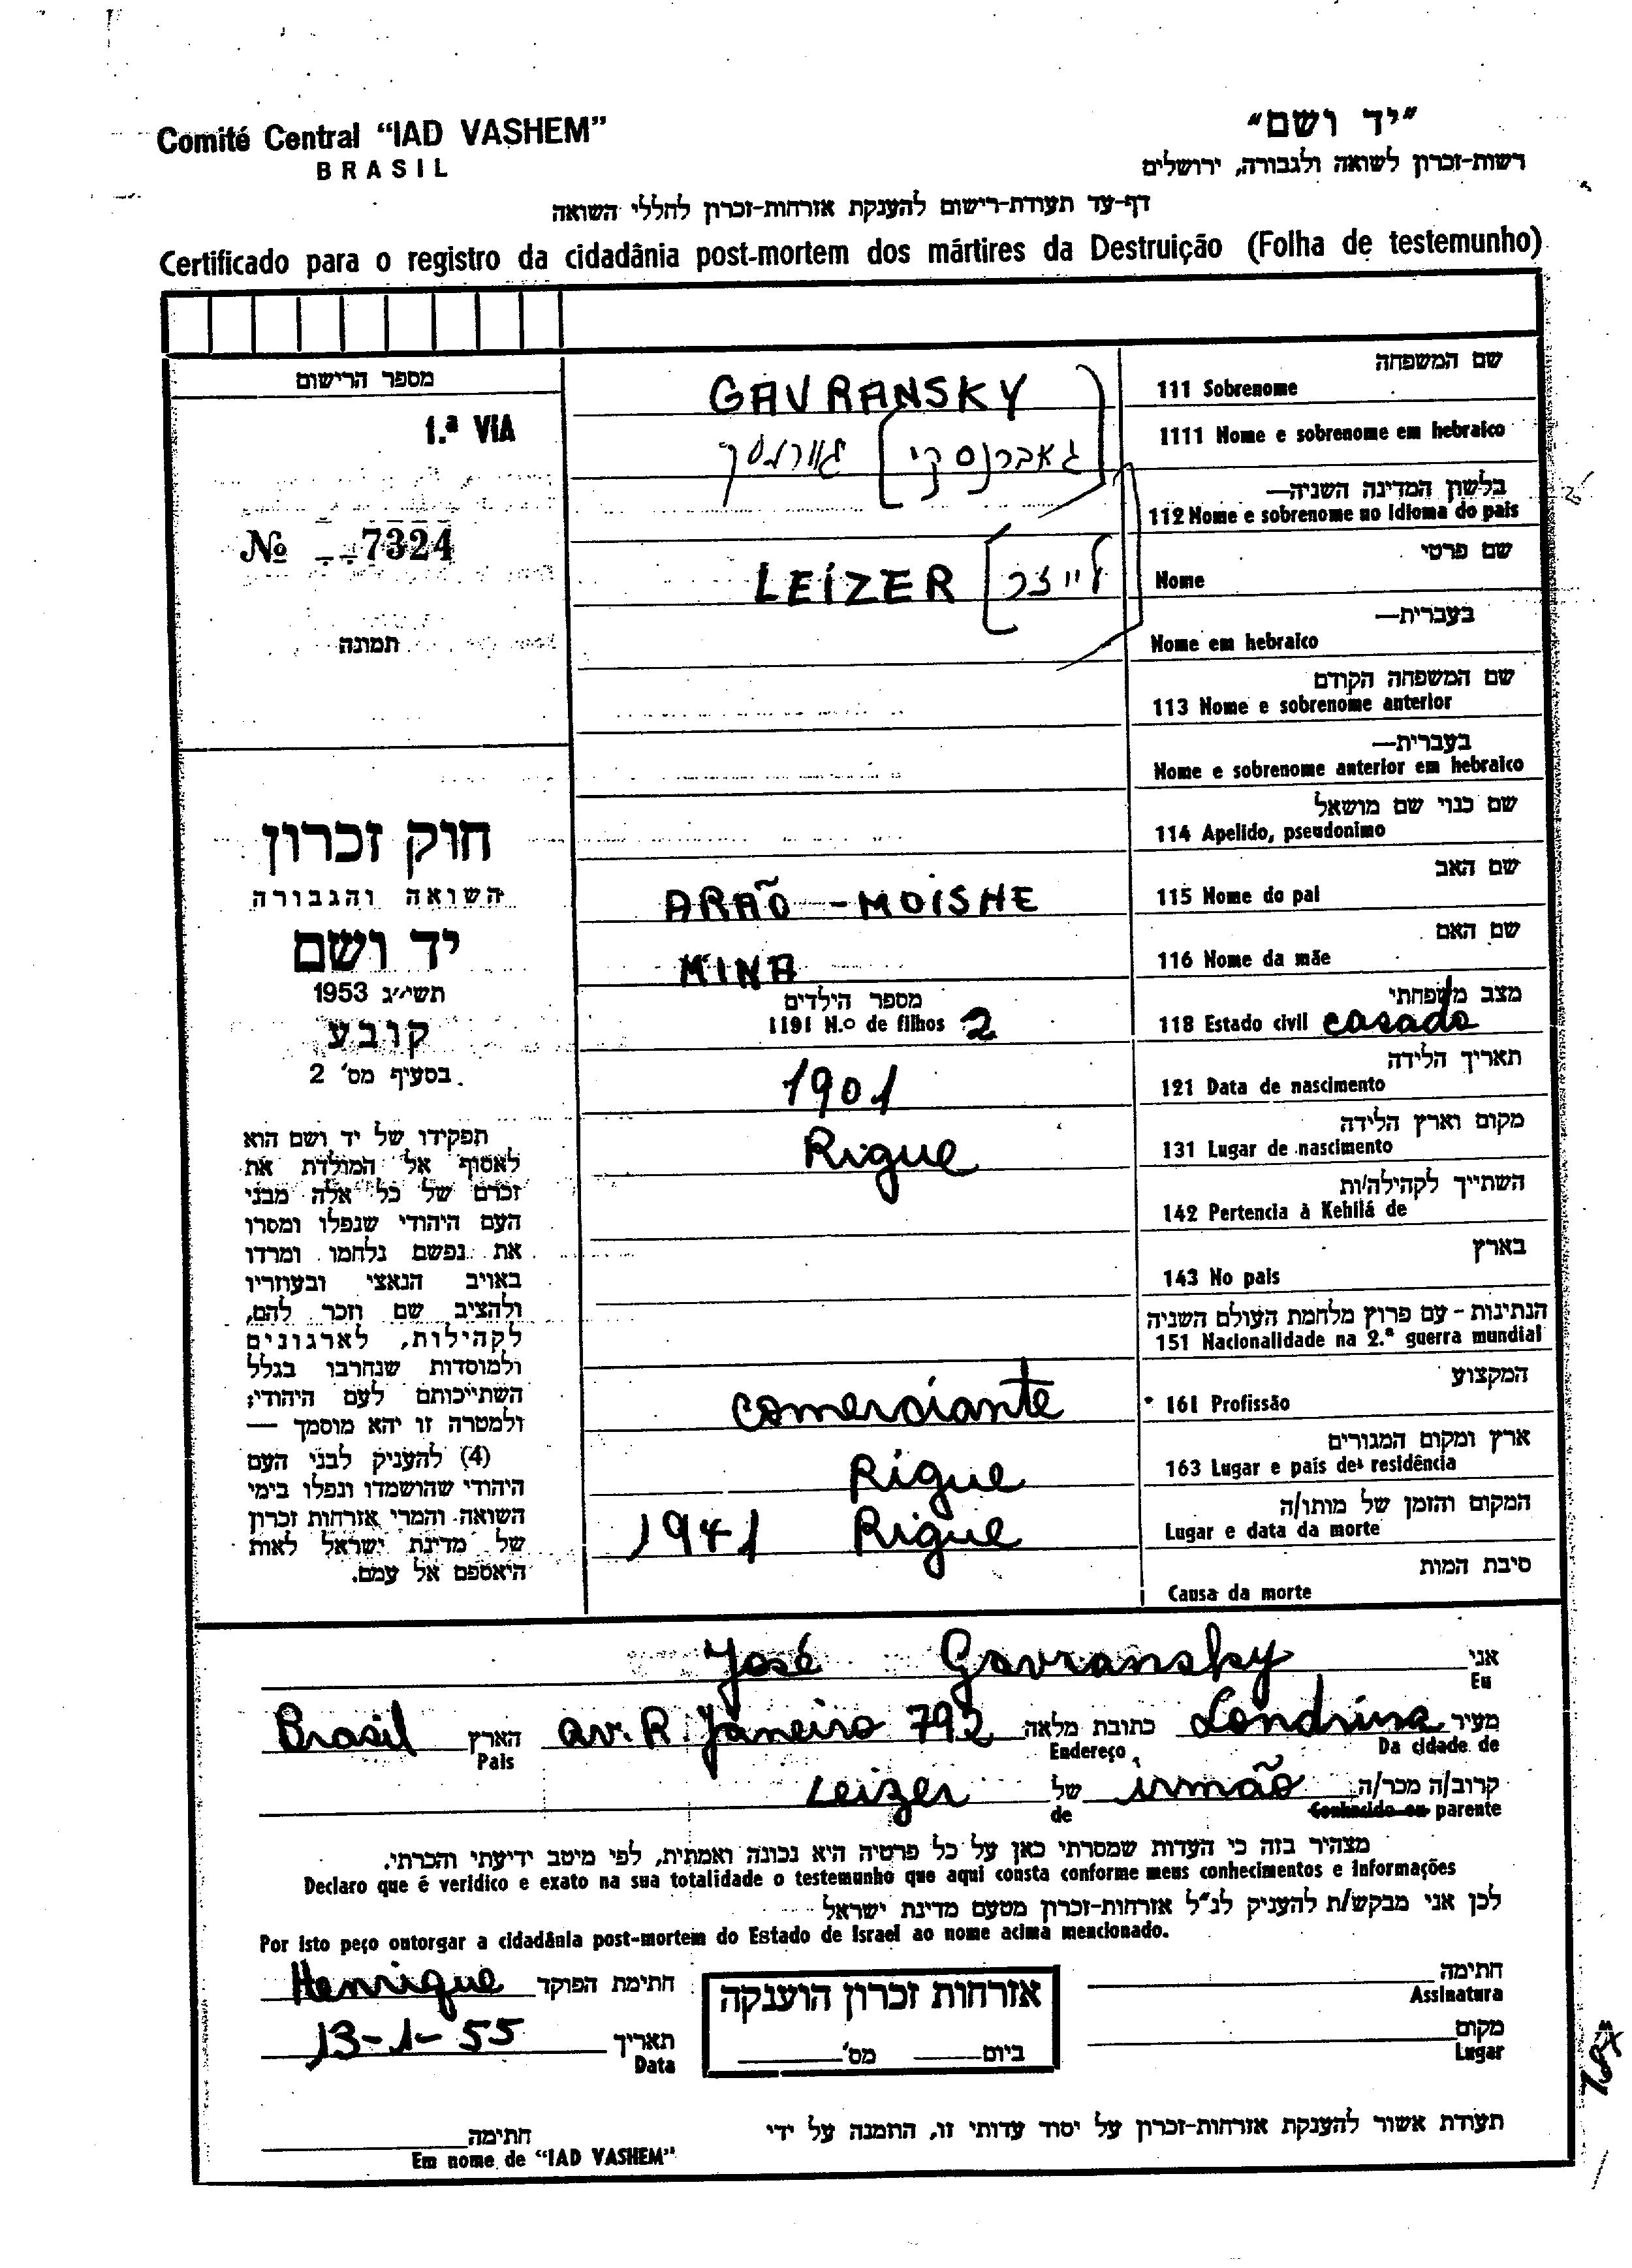 Comité Central "IAD VASHEM"
BRASIL
"יד ושם"
רשות-זכרון לשואה ולגבורה, ירושלים
דף-עד תעודת-רישום להענקת אזרחות-זכרון לחללי השואה
Certificado para o registro da cidadânia post-mortem dos mártires da Destruição (Folha de testemunho)
מספר הרישום
1.ª VIA
№ 7324
תמונה
חוק זכרון
השואה והגבורה
יד ושם
תשי״ג 1953
קובע
בסעיף מס' 2
תפקידו של יד ושם הוא
לאסוף אל המולדת את
זכרם של כל אלה מבני
העם היהודי שנפלו ומסרו
את נפשם נלחמו ומרדו
באויב הנאצי ובעוזריו
ולהציב שם וזכר להם,
לקהילות, לארגונים
ולמוסדות שנחרבו בגלל
השתייכותם לעם היהודי;
ולמטרה זו יהא מוסמך —
(4) להעניק לבני העם
היהודי שהושמדו ונפלו בימי
השואה והמרי אזרחות זכרון
של מדינת ישראל לאות
היאספם אל עמם.
שם המשפחה
111 Sobrenome GAVRANSKY
1111 Nome e sobrenome em hebraico [גאברנסקי]
בלשון המדינה השניה—
112 Nome e sobrenome no idioma do pais
שם פרטי
Nome LEIZER [לייזר]
בעברית—
Nome em hebraico
שם המשפחה הקודם
113 Nome e sobrenome anterior
בעברית—
Nome e sobrenome anterior em hebraico
שם כנוי שם מושאל
114 Apelido, pseudonimo
שם האב
115 Nome do pai ARÃO - MOISHE
שם האם
116 Nome da mãe MINA
מצב משפחתי
118 Estado civil casado
מספר הילדים
1191 N.o de filhos 2
תאריך הלידה
121 Data de nascimento 1901
מקום וארץ הלידה
131 Lugar de nascimento Rigue
השתייך לקהילה/ות
142 Pertencia à Kehilá de
בארץ
143 No pais
הנתינות - עם פרוץ מלחמת העולם השניה
151 Nacionalidade na 2.ª guerra mundial
המקצוע
161 Profissão comerciante
ארץ ומקום המגורים
163 Lugar e país de residência Rigue
המקום והזמן של מותו/ה
Lugar e data da morte 1941 Rigue
סיבת המות
Causa da morte
אני
Eu José Gavransky
מעיר Londrina כתובת מלאה av. R. Janeiro 792 הארץ Brasil
Da cidade de Endereço Pais
קרוב/ה מכר/ה irmão של Leizer
Conhecido ou parente de
מצהיר בזה כי העדות שמסרתי כאן על כל פרטיה היא נכונה ואמתית, לפי מיטב ידיעתי והכרתי.
Declaro que é veridico e exato na sua totalidade o testemunho que aqui consta conforme meus conhecimentos e informações
לכן אני מבקש/ת להעניק לנ"ל אזרחות-זכרון מטעם מדינת ישראל
Por isto peço outorgar a cidadânia post-mortem do Estado de Israel ao nome acima mencionado.
חתימה
Assinatura
מקום
Lugar
אזרחות זכרון הוענקה
ביום מס'
חתימת הפוקד Henrique
תאריך 13-1-55
Data
תעודת אשור להענקת אזרחות-זכרון על יסוד עדותי זו, הוזמנה על ידי
חתימה
Em nome de "IAD VASHEM"